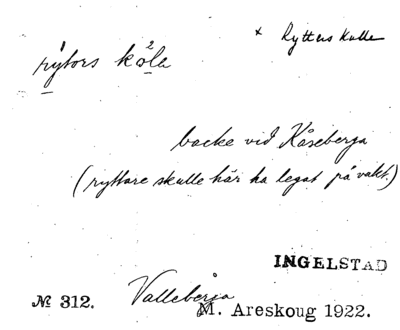 × Ryttars kulle
rýtors kola
backe vid Kåseberga
(ryttare skulle här ha legat på vakt.)
INGELSTAD
Valleberga
№ 312.
M. Areskoug 1922.